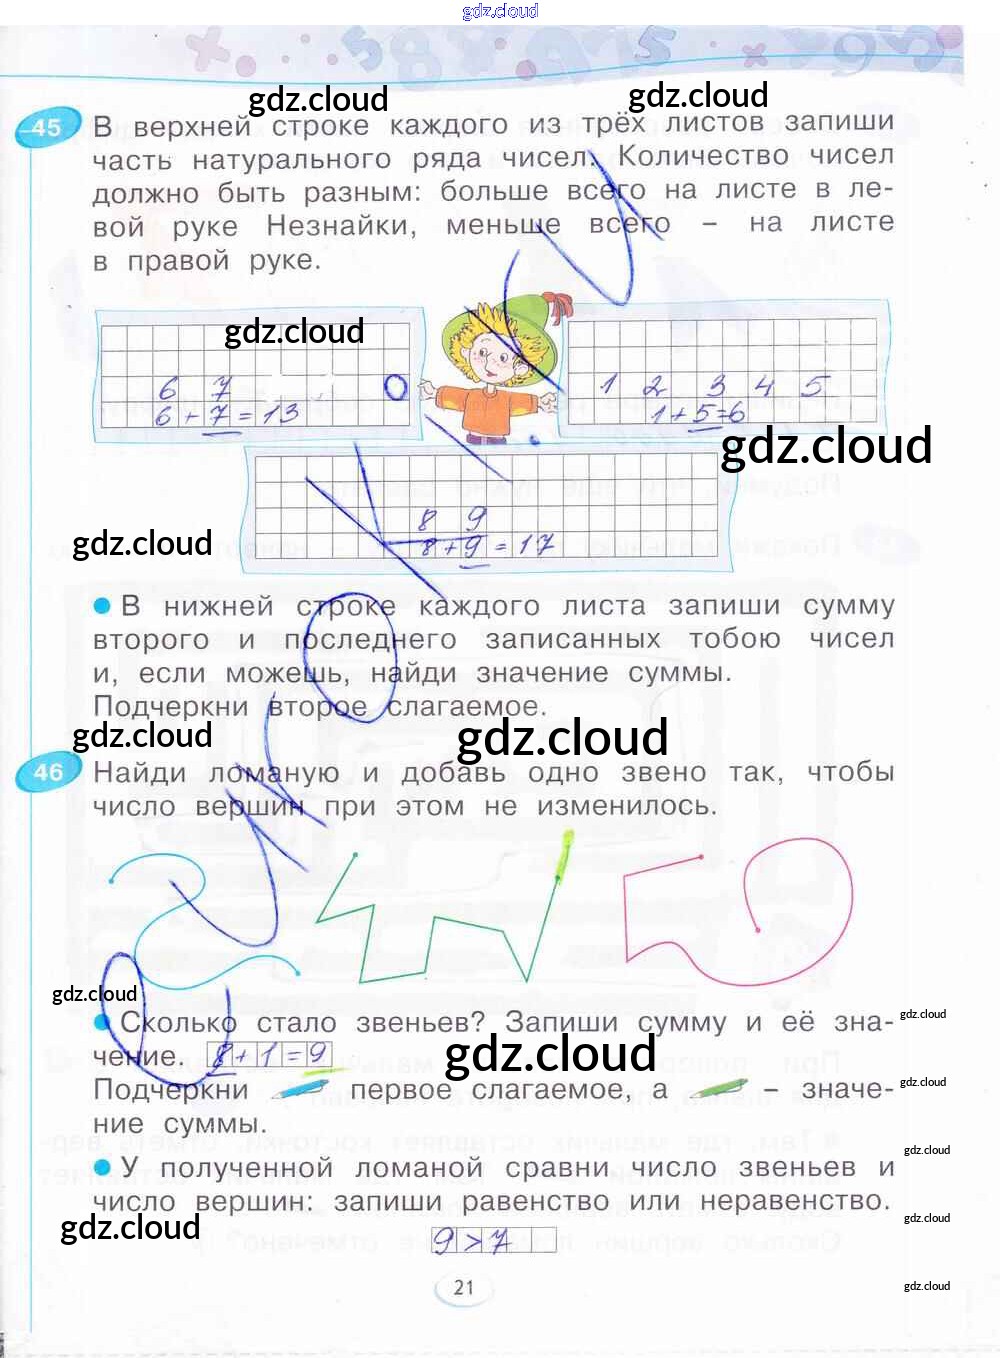 gdz.cloud
gdz.cloud
gdz.cloud
45 В верхней строке каждого из трёх листов запиши
часть натурального ряда чисел. Количество чисел
должно быть разным: больше всего на листе в ле-
вой руке Незнайки, меньше всего – на листе
в правой руке.
gdz.cloud
6 7
6 + 7 = 13
1 2 3 4 5
1 + 5 = 6
gdz.cloud
8 9
8 + 9 = 17
gdz.cloud
В нижней строке каждого листа запиши сумму
второго и последнего записанных тобою чисел
и, если можешь, найди значение суммы.
Подчеркни второе слагаемое.
gdz.cloud
gdz.cloud
46 Найди ломаную и добавь одно звено так, чтобы
число вершин при этом не изменилось.
gdz.cloud
gdz.cloud
Сколько стало звеньев? Запиши сумму и её зна-
чение. 8 + 1 = 9
gdz.cloud
gdz.cloud
Подчеркни первое слагаемое, а – значе-
ние суммы.
gdz.cloud
У полученной ломаной сравни число звеньев и
число вершин: запиши равенство или неравенство.
gdz.cloud
gdz.cloud
9 > 7
21
gdz.cloud